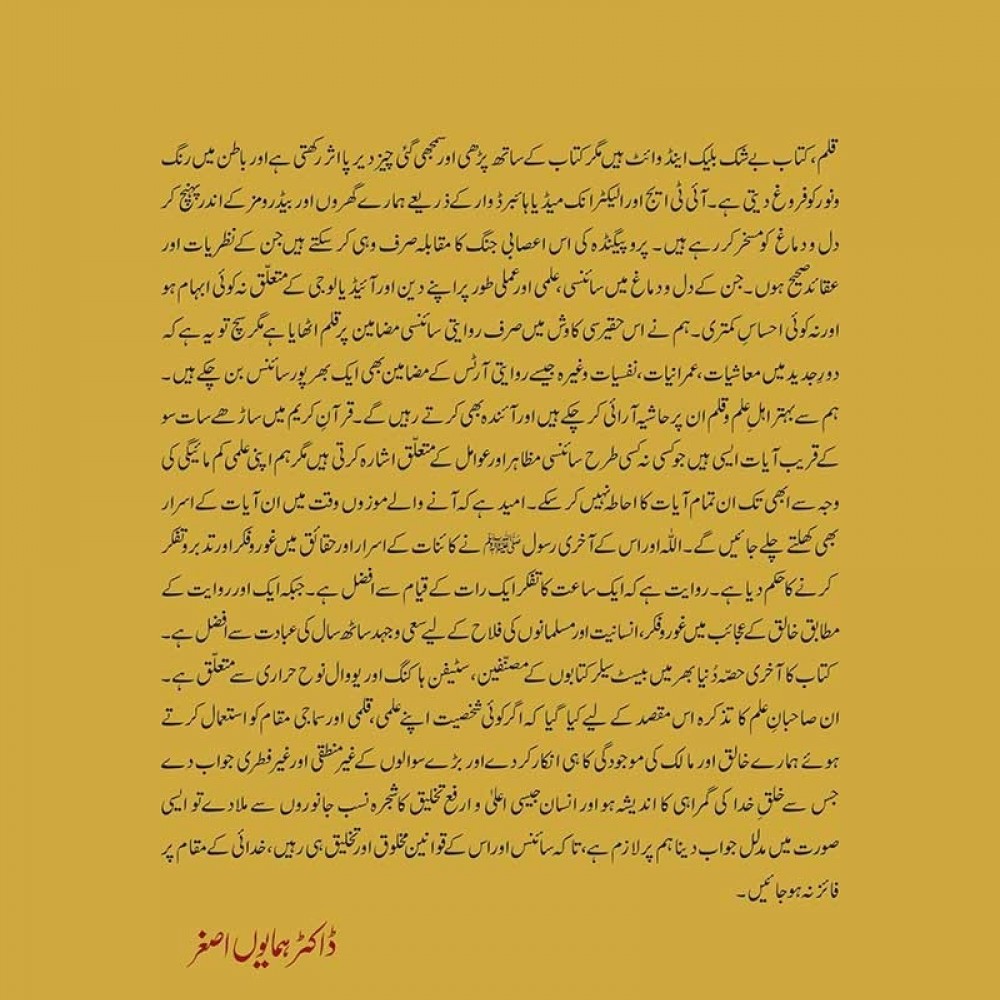 قلم، کتاب بے شک بلیک اینڈ وائٹ ہیں مگر کتاب کے ساتھ پڑھی اور سمجھی گئی چیز دیر پا اثر رکھتی ہے اور باطن میں رنگ
و نور کو فروغ دیتی ہے۔ آئی ٹی ایج اور الیکٹرانک میڈیا ہائبرڈ وار کے ذریعے ہمارے گھروں اور بیڈ رومز کے اندر پہنچ کر
دل و دماغ کو مسخر کر رہے ہیں۔ پروپیگنڈہ کی اس اعصابی جنگ کا مقابلہ صرف وہی کر سکتے ہیں جن کے نظریات اور
عقائد صحیح ہوں۔ جن کے دل و دماغ میں سائنسی، علمی اور عملی طور پر اپنے دین اور آئیڈیالوجی کے متعلّق نہ کوئی ابہام ہو
اور نہ کوئی احساسِ کمتری۔ ہم نے اس حقیر سی کاوش میں صرف روایتی سائنسی مضامین پر قلم اٹھایا ہے مگر سچ تو یہ ہے کہ
دورِ جدید میں معاشیات، عمرانیات، نفسیات وغیرہ جیسے روایتی آرٹس کے مضامین بھی ایک بھرپور سائنس بن چکے ہیں۔
ہم سے بہتر اہلِ علم و قلم ان پر حاشیہ آرائی کر چکے ہیں اور آئندہ بھی کرتے رہیں گے۔ قرآنِ کریم میں ساڑھے سات سو
کے قریب آیات ایسی ہیں جو کسی نہ کسی طرح سائنسی مظاہر اور عوامل کے متعلّق اشارہ کرتی ہیں مگر ہم اپنی علمی کم مائیگی کی
وجہ سے ابھی تک ان تمام آیات کا احاطہ نہیں کر سکے۔ امید ہے کہ آنے والے موزوں وقت میں ان آیات کے اسرار
بھی کھلتے چلے جائیں گے۔ اللہ اور اس کے آخری رسول ﷺ نے کائنات کے اسرار اور حقائق میں غور و فکر اور تدبر و تفکر
کرنے کا حکم دیا ہے۔ روایت ہے کہ ایک ساعت کا تفکر ایک رات کے قیام سے افضل ہے۔ جبکہ ایک اور روایت کے
مطابق خالق کے عجائب میں غور و فکر، انسانیت اور مسلمانوں کی فلاح کے لیے سعی و جہد ساٹھ سال کی عبادت سے افضل ہے۔
کتاب کا آخری حصّہ دُنیا بھر میں بیسٹ سیلر کتابوں کے مصنّفین، سٹیفن ہاکنگ اور یووال نوح حراری سے متعلّق ہے۔
ان صاحبانِ علم کا تذکرہ اس مقصد کے لیے کیا گیا کہ اگر کوئی شخصیت اپنے علمی، قلمی اور سماجی مقام کو استعمال کرتے
ہوئے ہمارے خالق اور مالک کی موجودگی کا ہی انکار کر دے اور بڑے سوالوں کے غیر منطقی اور غیر فطری جواب دے
جس سے خلقِ خدا کی گمراہی کا اندیشہ ہو اور انسان جیسی اعلیٰ و ارفع تخلیق کا شجرہ نسب جانوروں سے ملا دے تو ایسی
صورت میں مدلل جواب دینا ہم پر لازم ہے، تاکہ سائنس اور اس کے قوانین مخلوق اور تخلیق ہی رہیں، خدائی کے مقام پر
فائز نہ ہو جائیں۔
ڈاکٹر ہمایوں اصغر